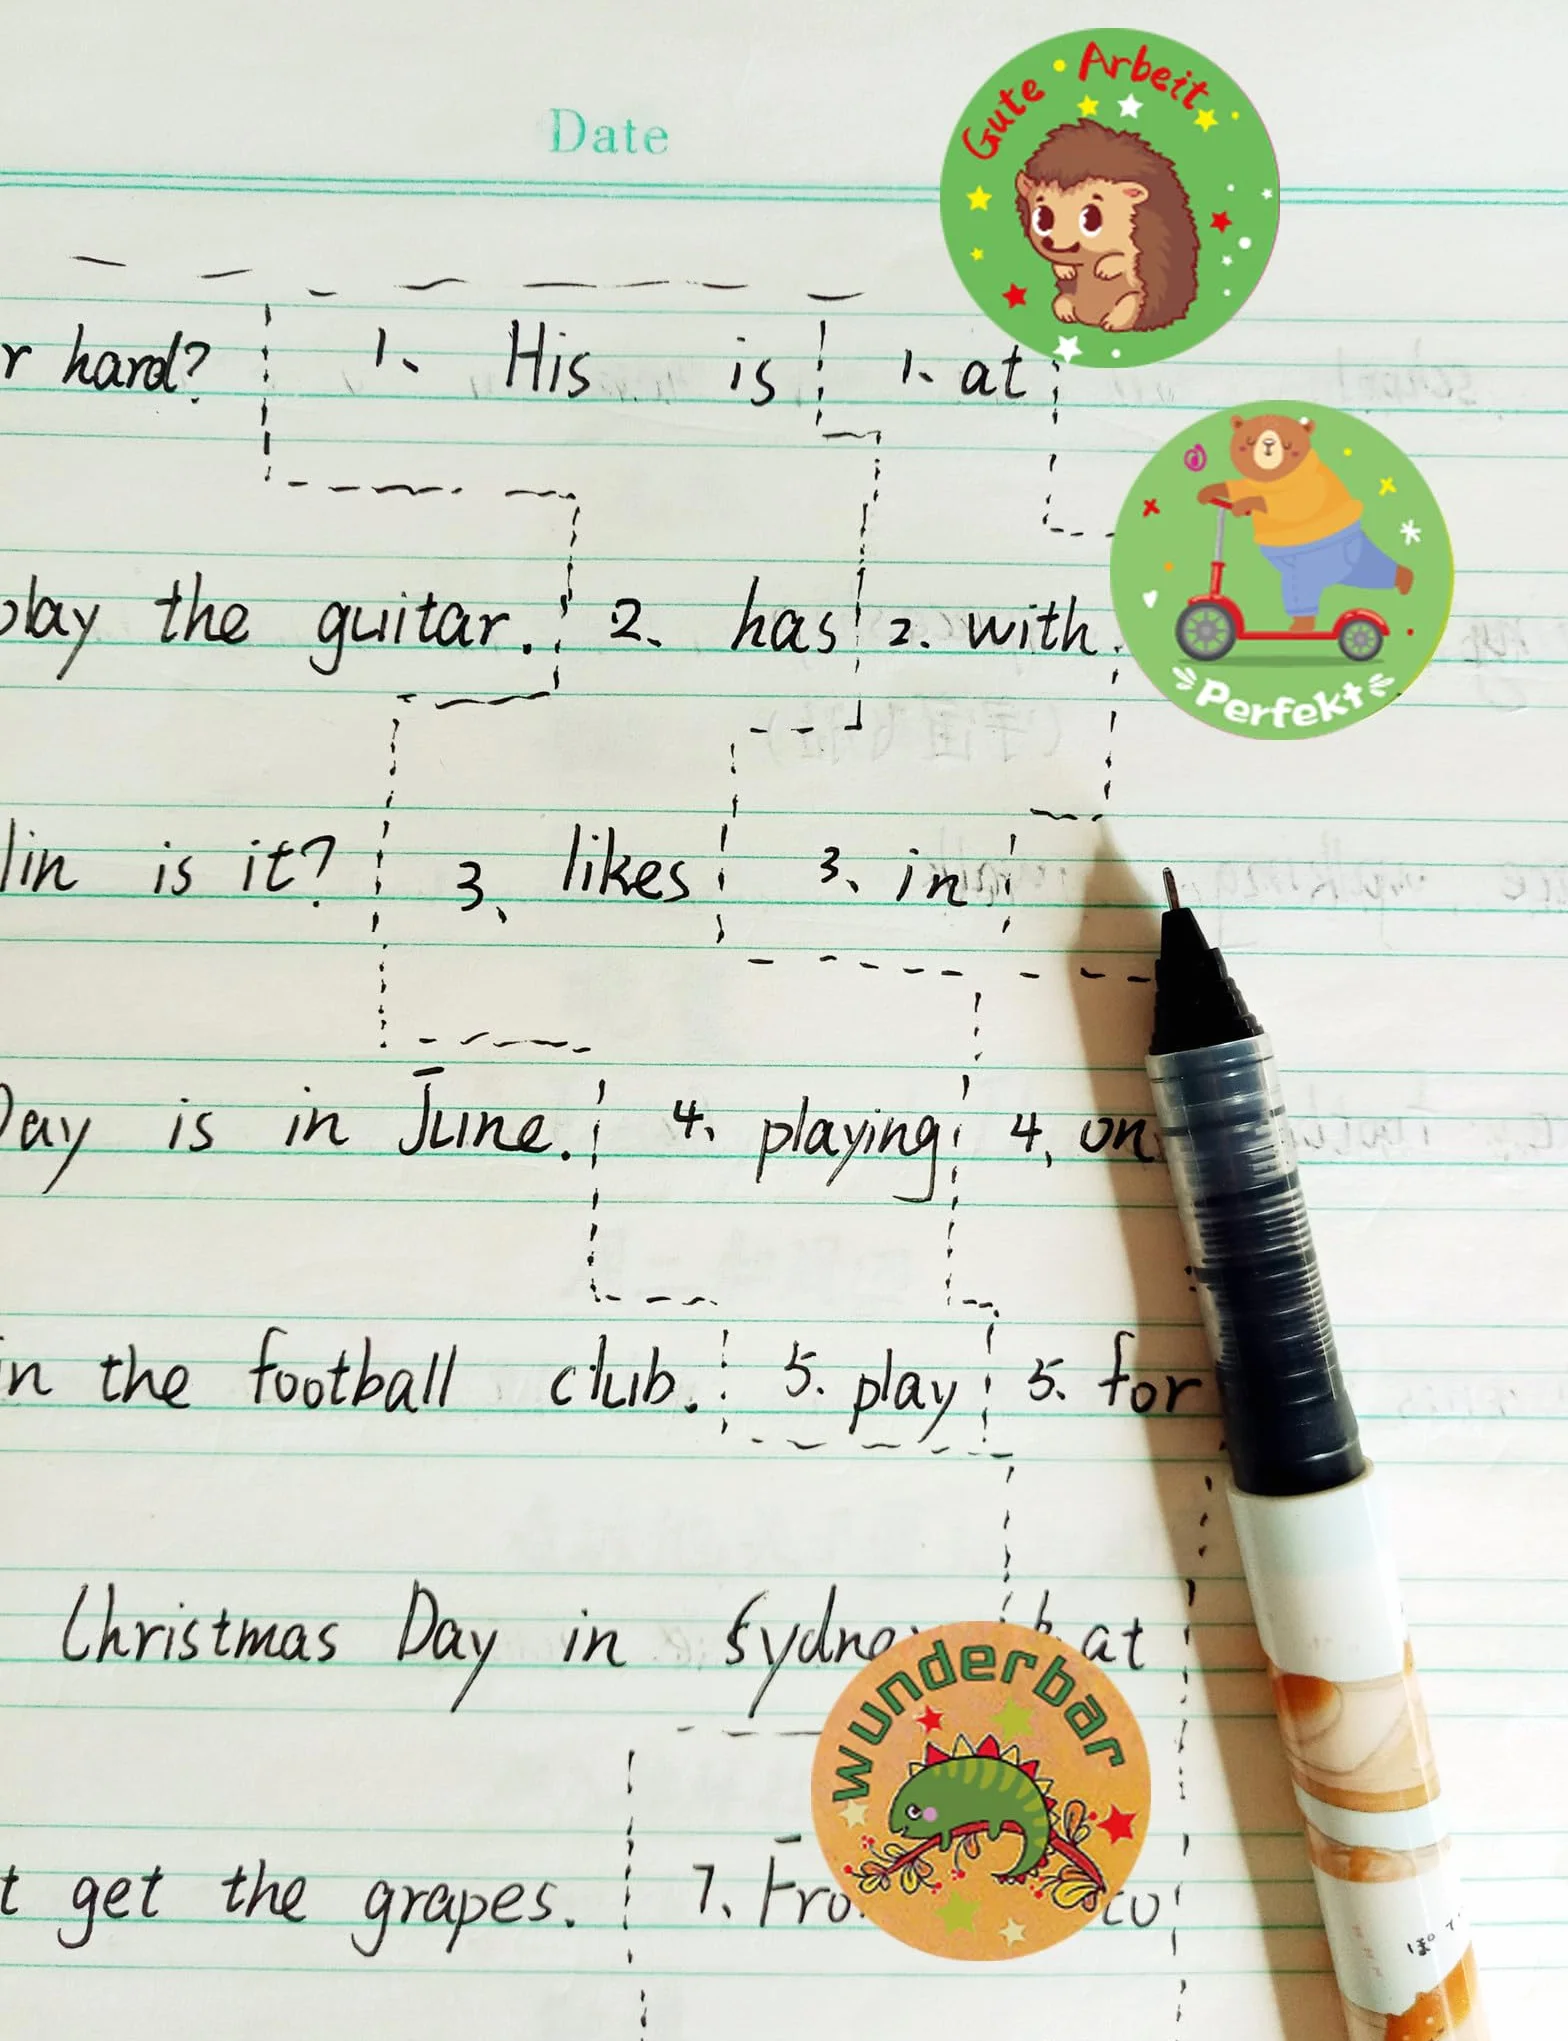 Date
Gute Arbeit
hard? 1、 His is 1. at
Perfekt
play the guitar. 2、 has 2. with
is it? 3、 likes 3、 in
Day is in June. 4. playing 4, on
in the football club. 5. play 5. for
Christmas Day in Sydney at
wunderbar
get the grapes. 7.